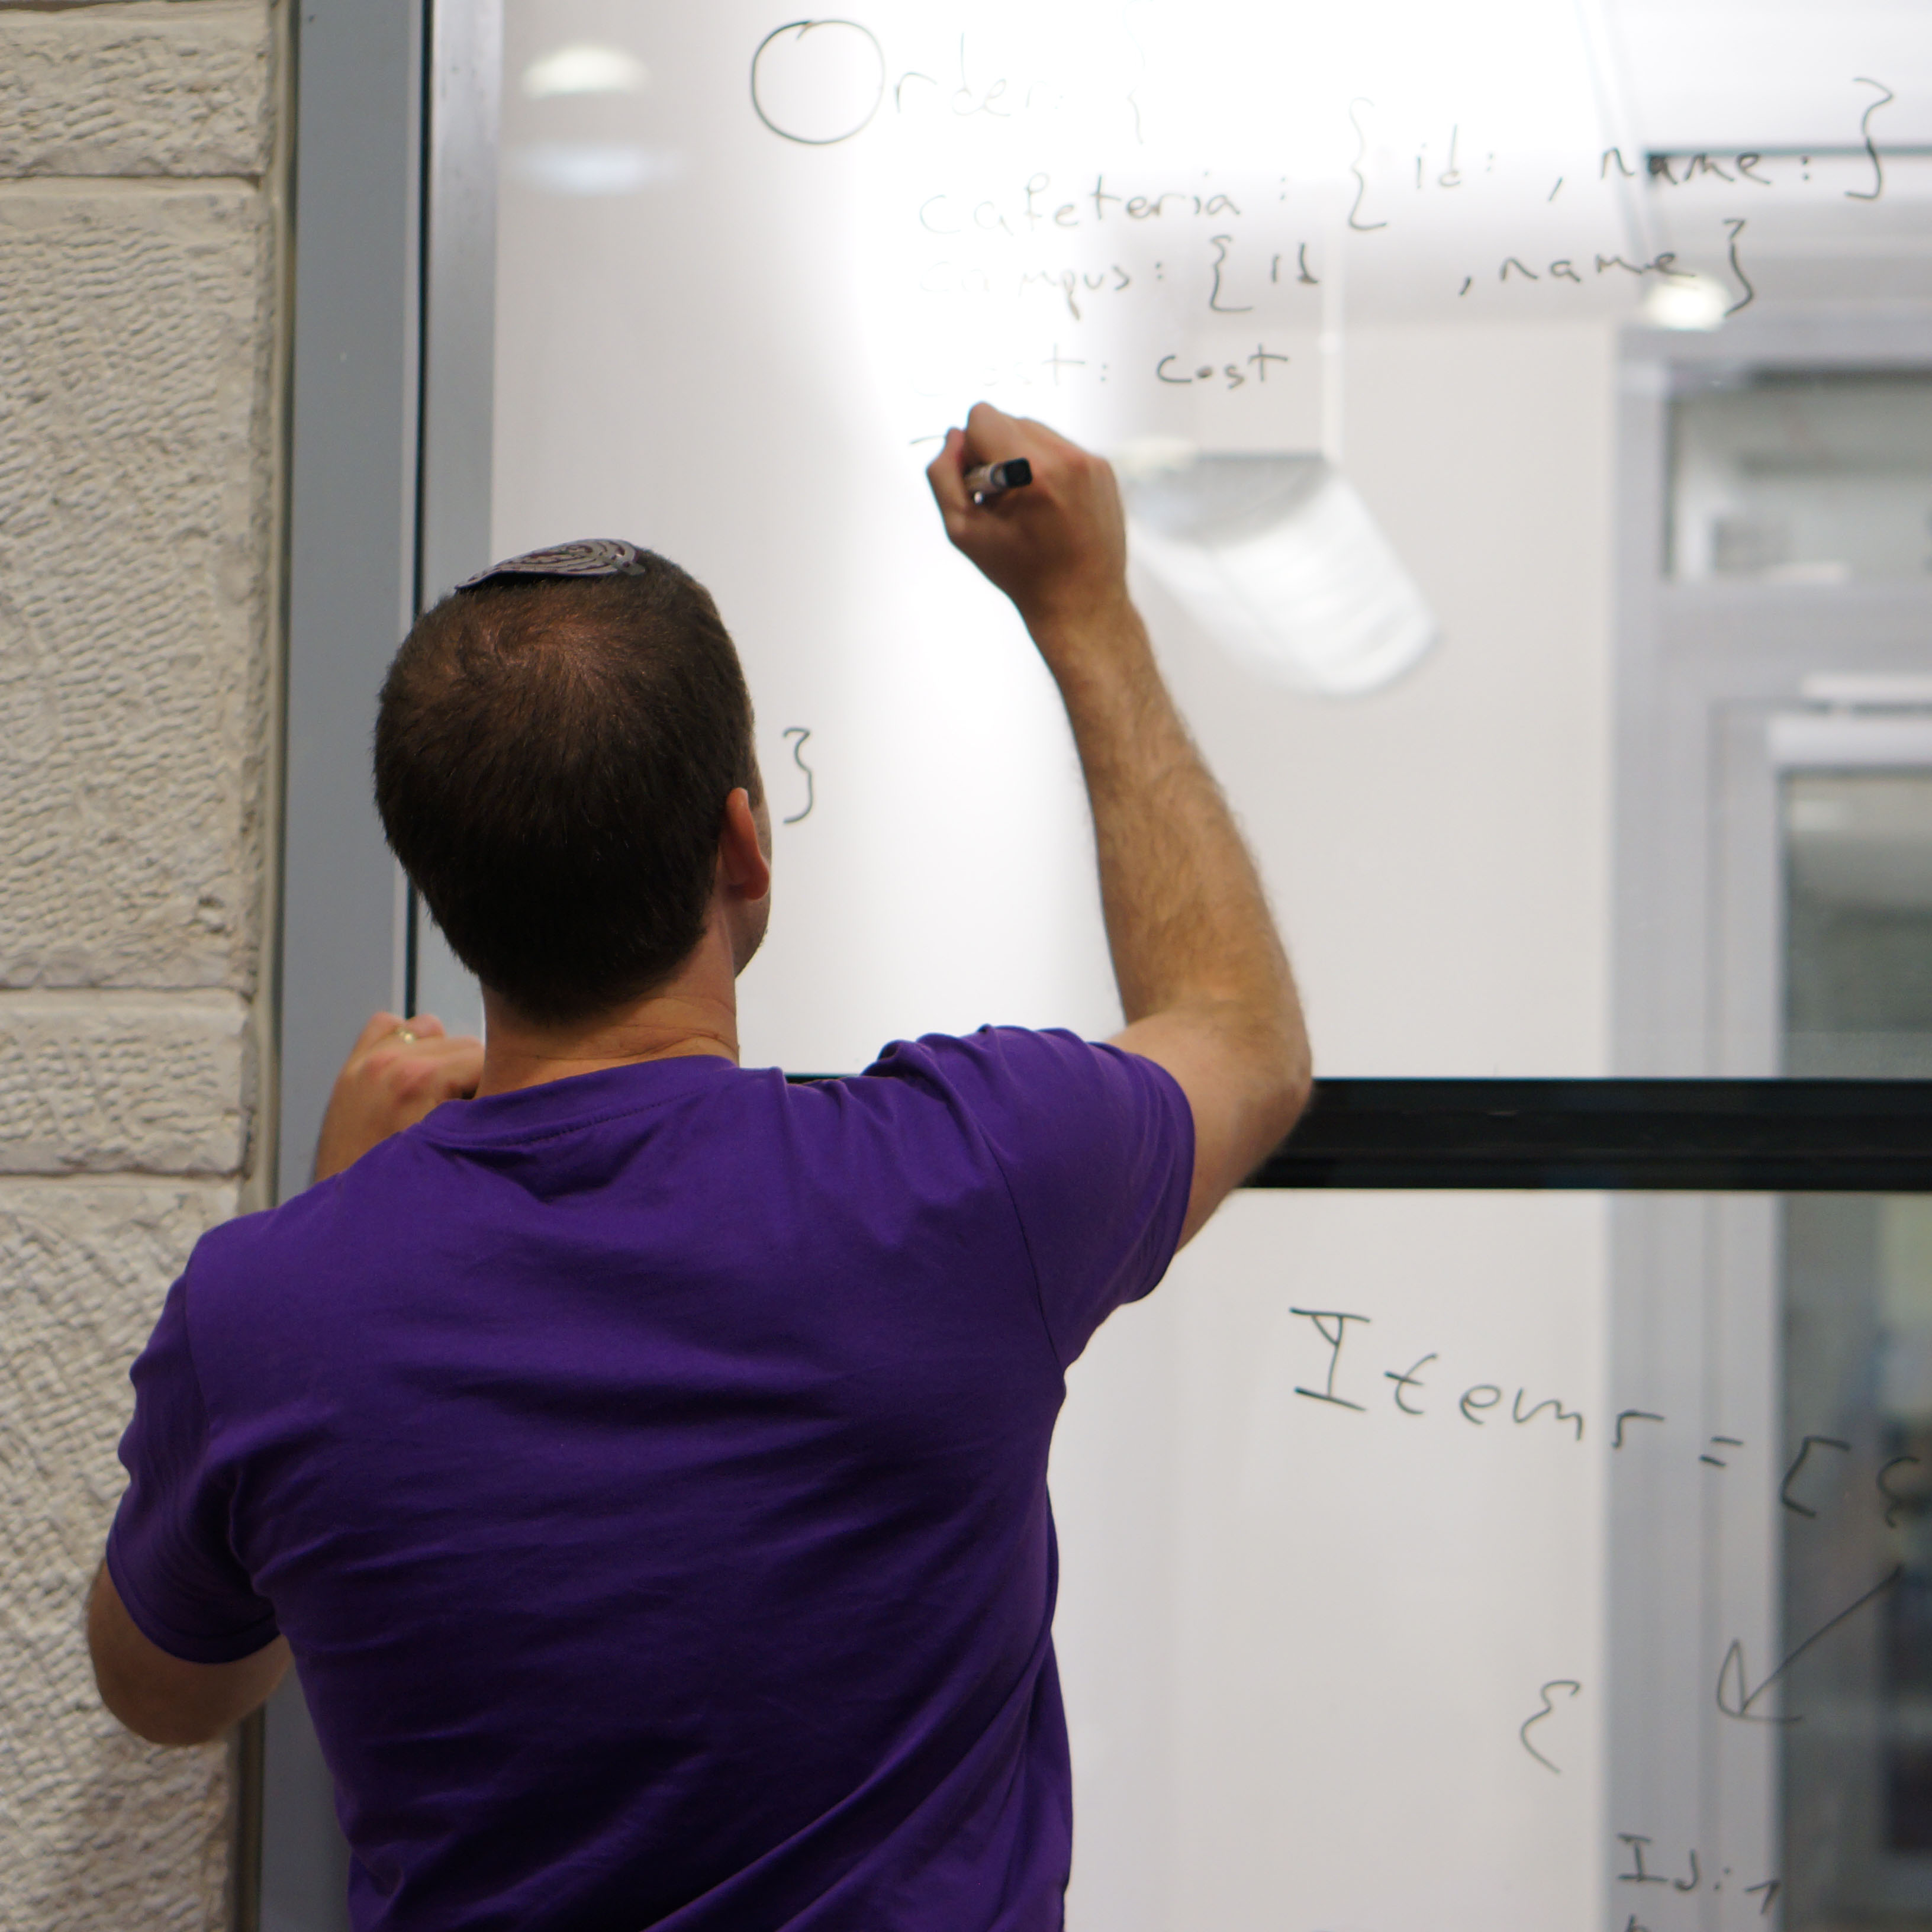 Order: {
cafeteria: {id: , name: }
campus: {id , name}
cost: cost
}
Items = [ {
{
Id: 1